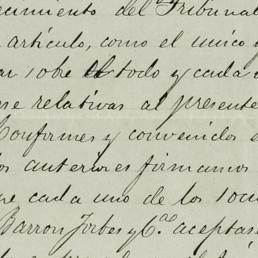 cimiento del Tribunal
artículo, como el unico
ar sobre el todo y cada
se relativas al presente
Conformes y convenidos
os anteriores firmamos
ue cada uno de los
Barron Forbes y Cª. aceptas